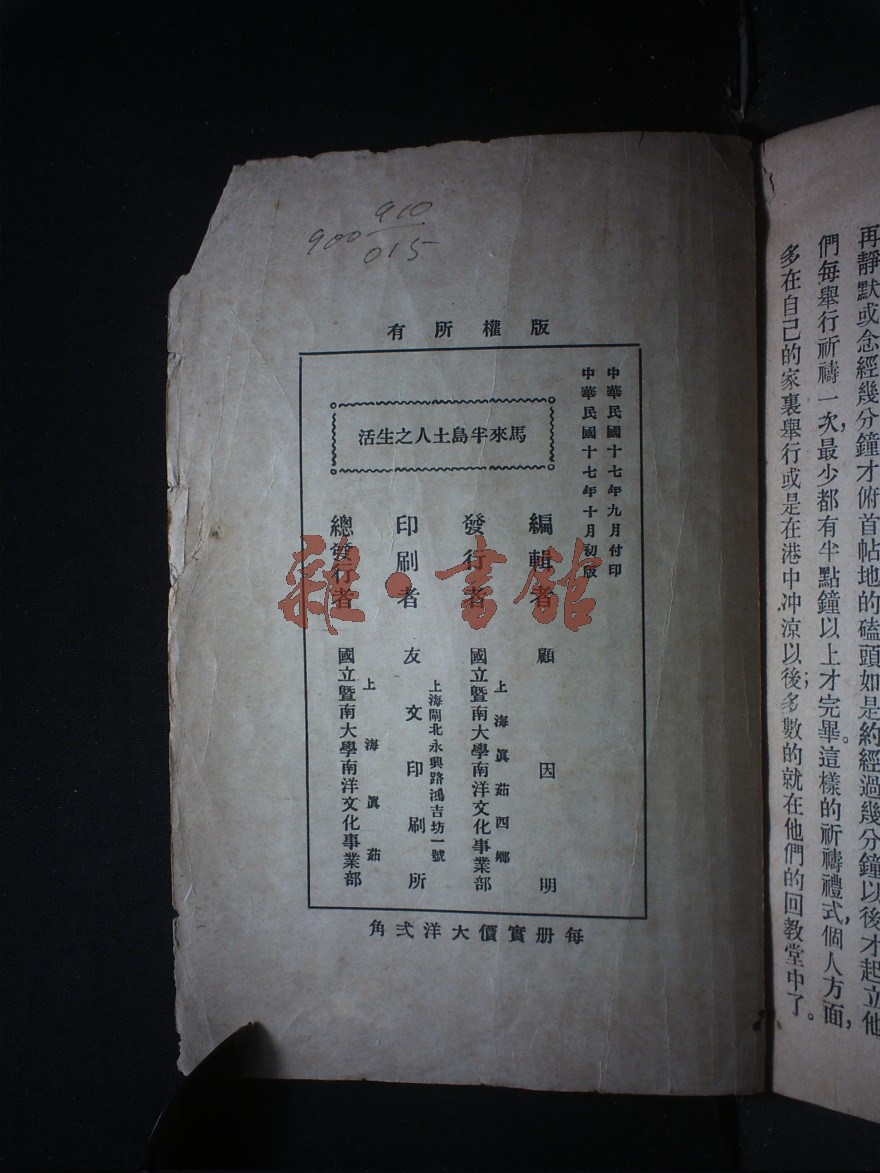 再靜默或念經幾分鐘才俯首帖地的磕頭如是約經過幾分鐘以後才起立他
們每舉行祈禱一次,最少都有半點鐘以上才完畢。這樣的祈禱禮式,個人方面,
多在自己的家裏舉行或是在港中冲涼以後;多數的就在他們的回教堂中了。
910
900
015
版權所有
中華民國十七年九月付印
中華民國十七年十月初版
馬來半島土人之生活
編輯者 顧因明
上海眞茹四鄉
發行者 國立暨南大學南洋文化事業部
上海閘北永興路鴻吉坊一號
印刷者 友文印刷所
上海眞茹
總發行者 國立暨南大學南洋文化事業部
每册實價大洋弍角
雜·書館